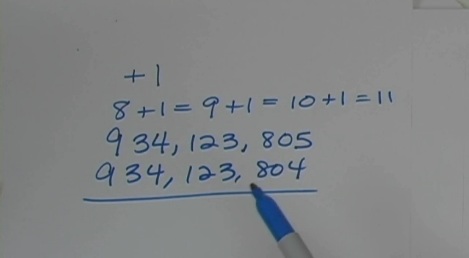 +1
8+1=9+1=10+1=11
934,123,805
934,123,804